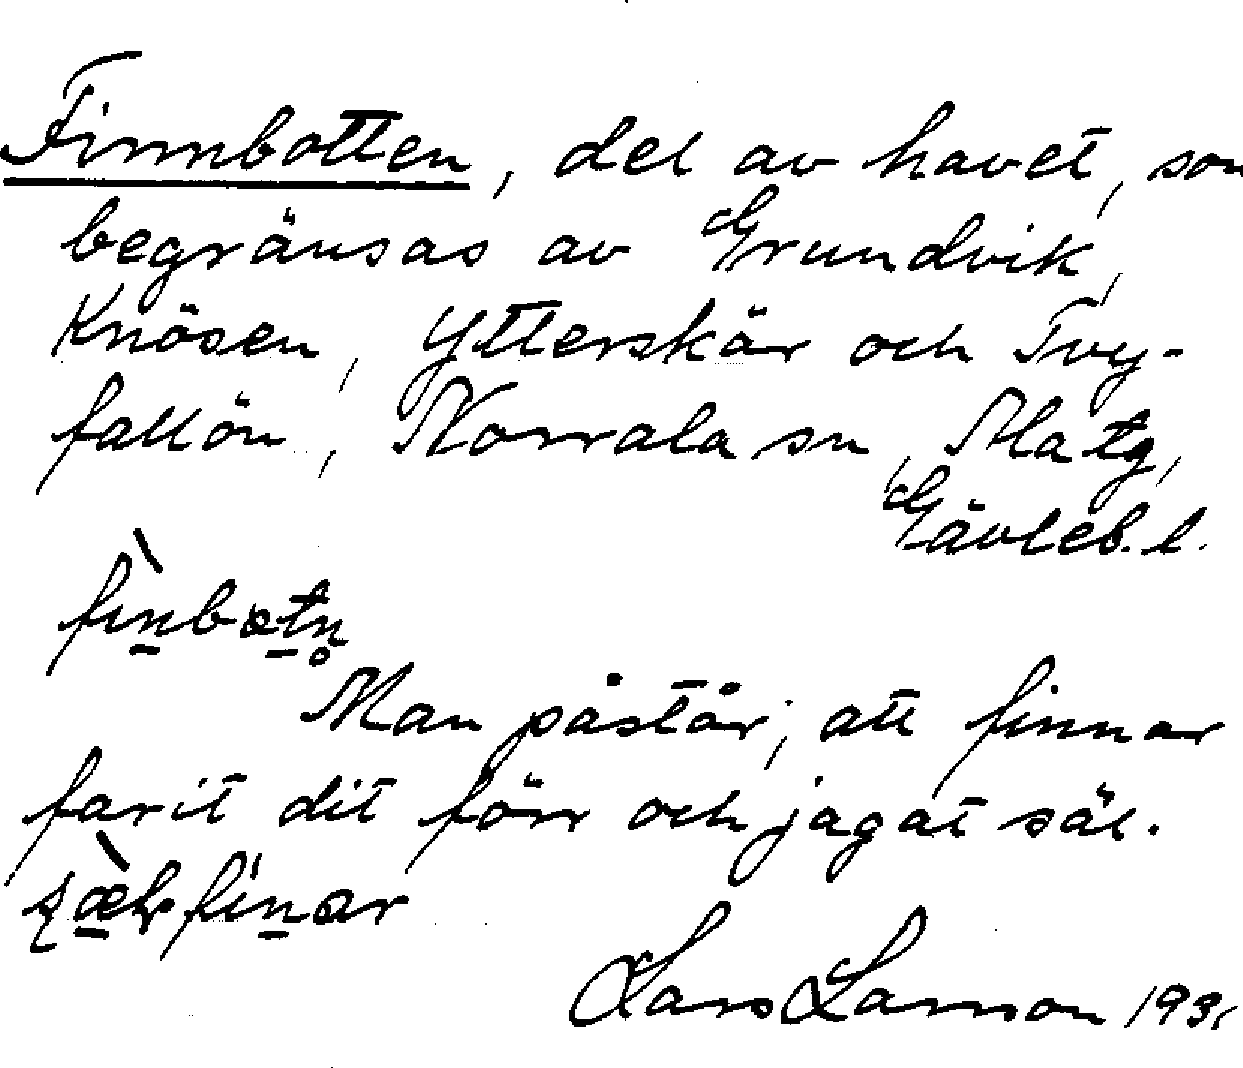 Finnbotten, del av havet, som
begränsas av Grundvik,
Knösen, Ytterskär och Tvy-
fallön, Norrala sn, Ala tg,
Gävleb. l.
Man påstår, att finnar
farit dit förr och jagat säl.
Lars Larsson 193